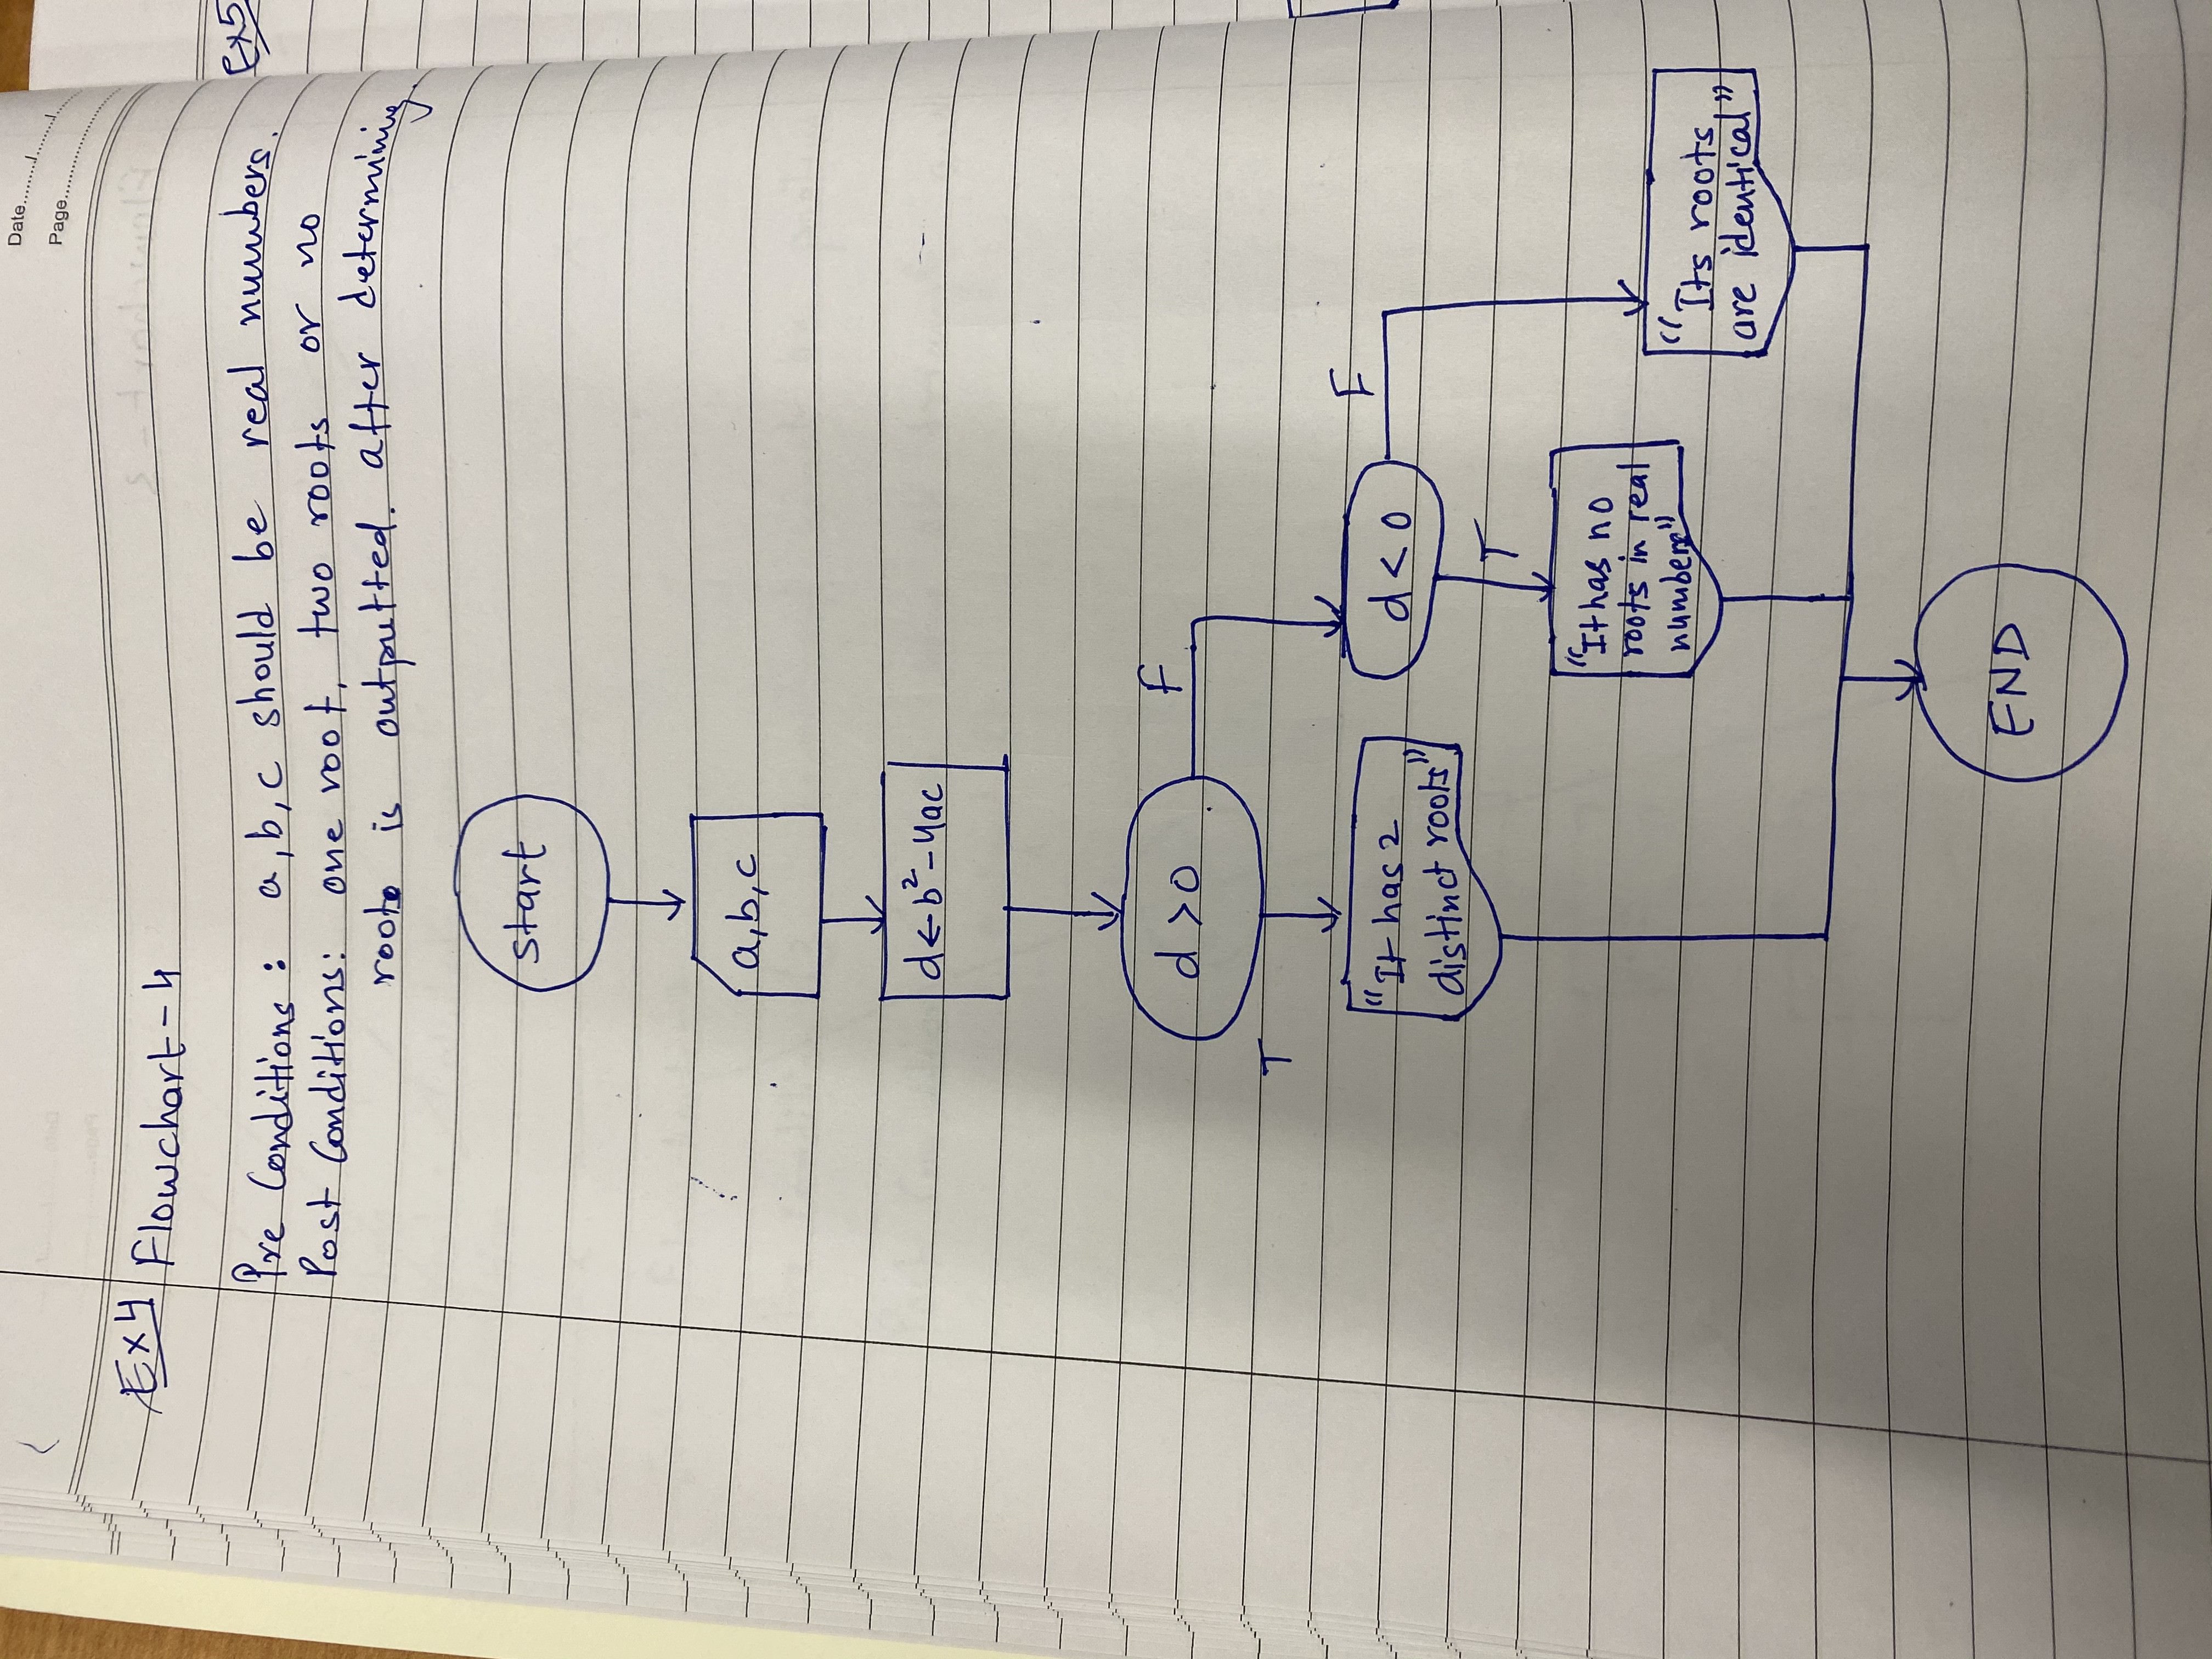 Date......../......../........
Page........................
Ex4 Flowchart - 4
Ex5
Pre Conditions : a, b, c should be real numbers.
Post Conditions: one root, two roots or no
roots is outputted. after determining.
start
a, b, c
d ← b² - 4ac
d > 0
F
T
"It has 2
distinct roots"
d < 0
F
T
"It has no
roots in real
numbers"
"Its roots
are identical"
END